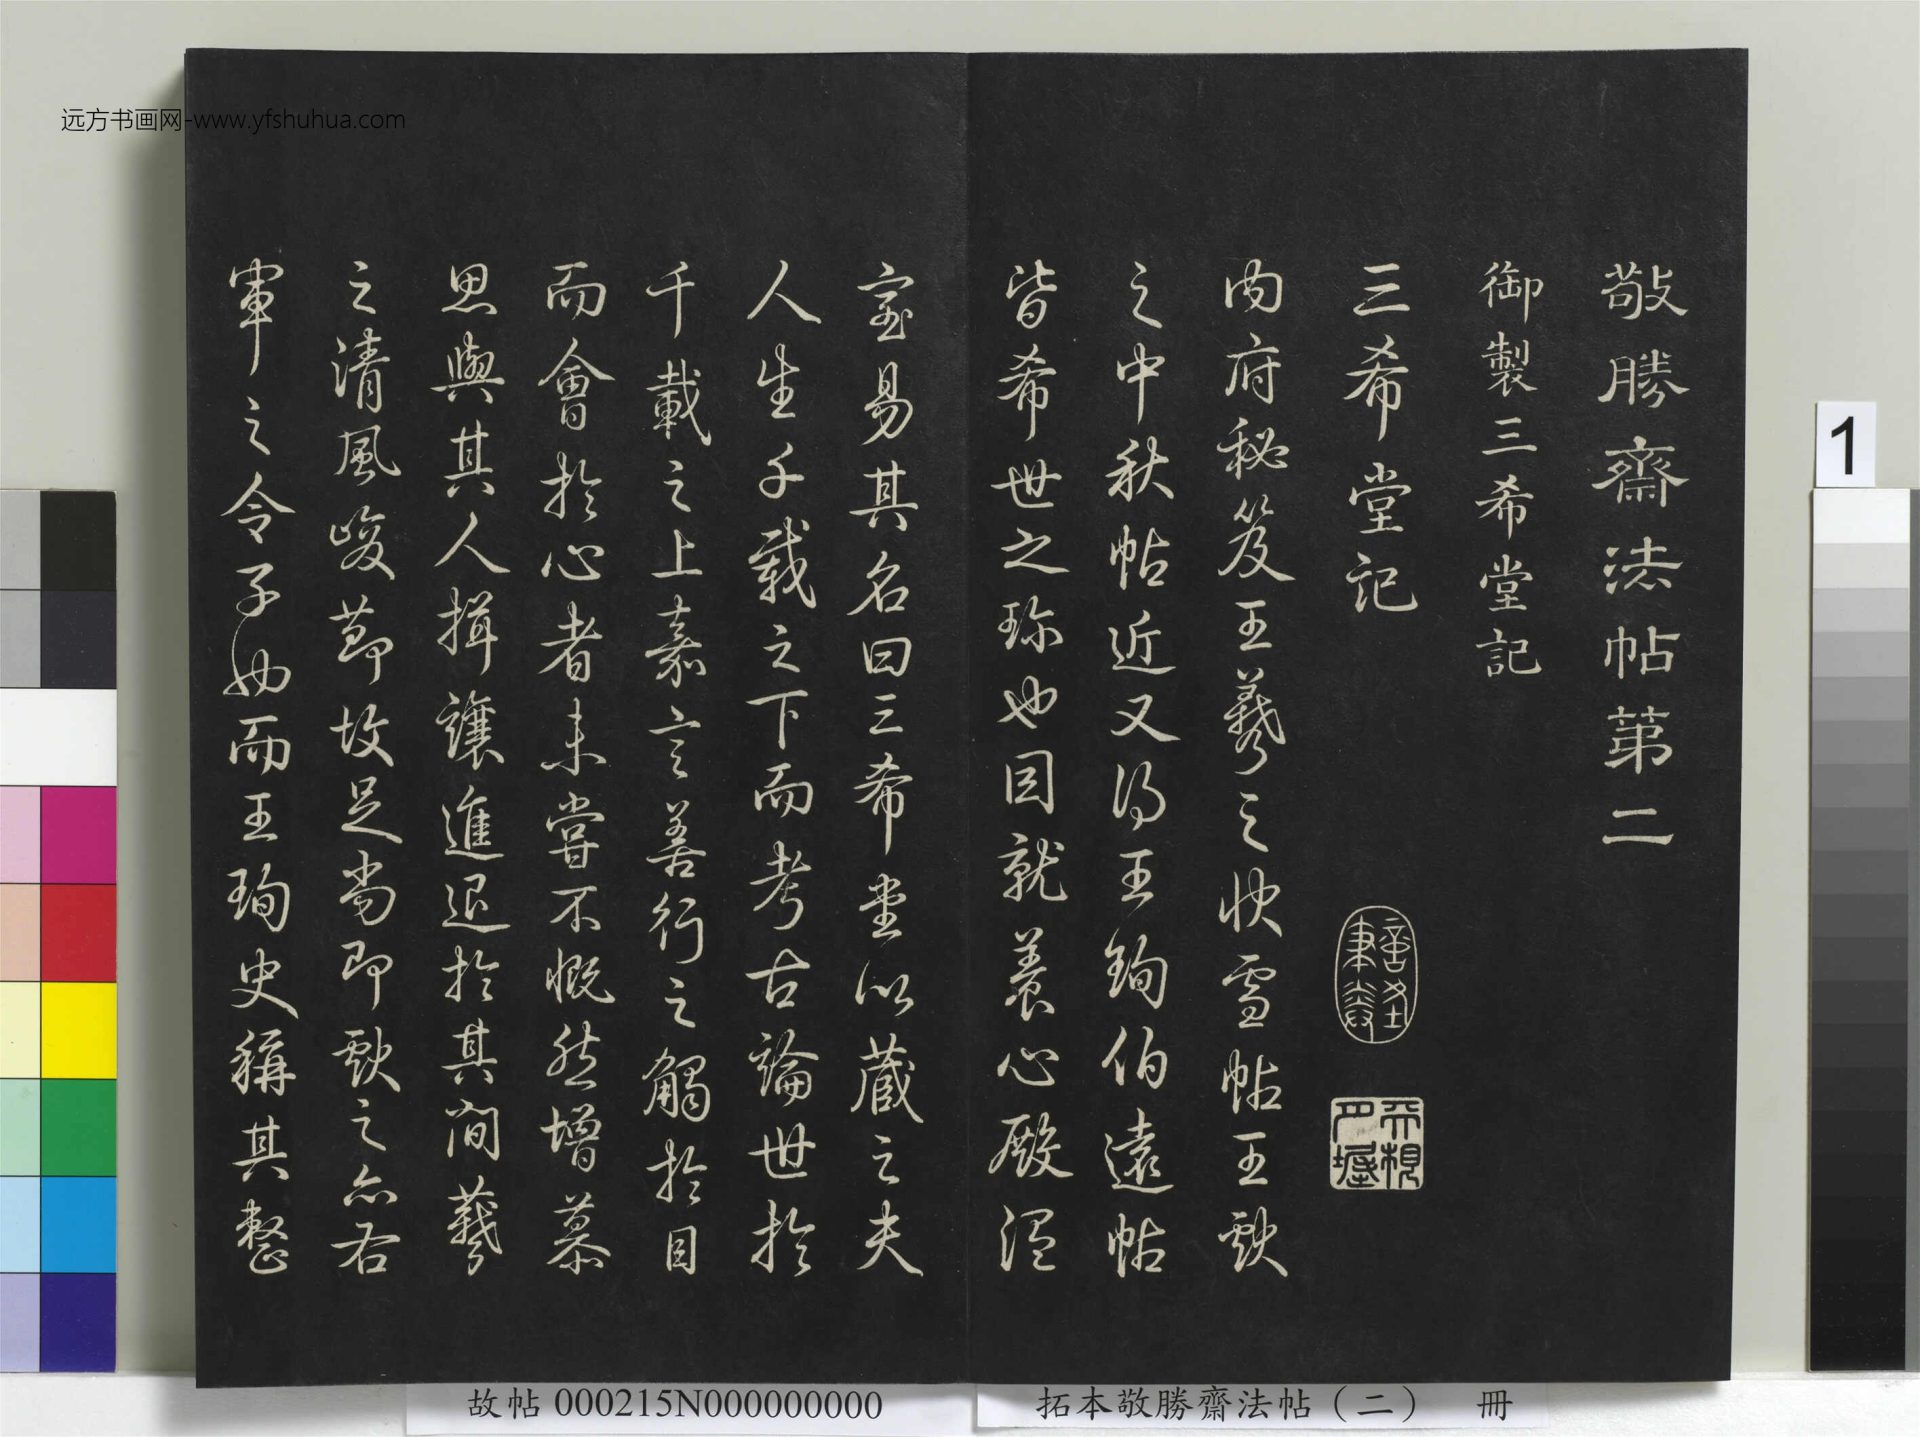 敬勝齋法帖第二
御製三希堂記
三希堂記
内府秘笈王羲之快雪帖王獻
之中秋帖近又得王珣伯遠帖
皆希世之珍也因就養心殿溫
室易其名曰三希堂以藏之夫
人生千載之下而考古論世於
千載之上嘉言善行之觸於目
而會於心者未嘗不慨然增慕
思與其人揖讓進退於其間羲
之清風峻節故足尚即獻之亦右
軍之令子也而王珣史稱其整
远方书画网-www.yfshuhua.com
1
故帖 000215N000000000
拓本敬勝齋法帖（二） 冊